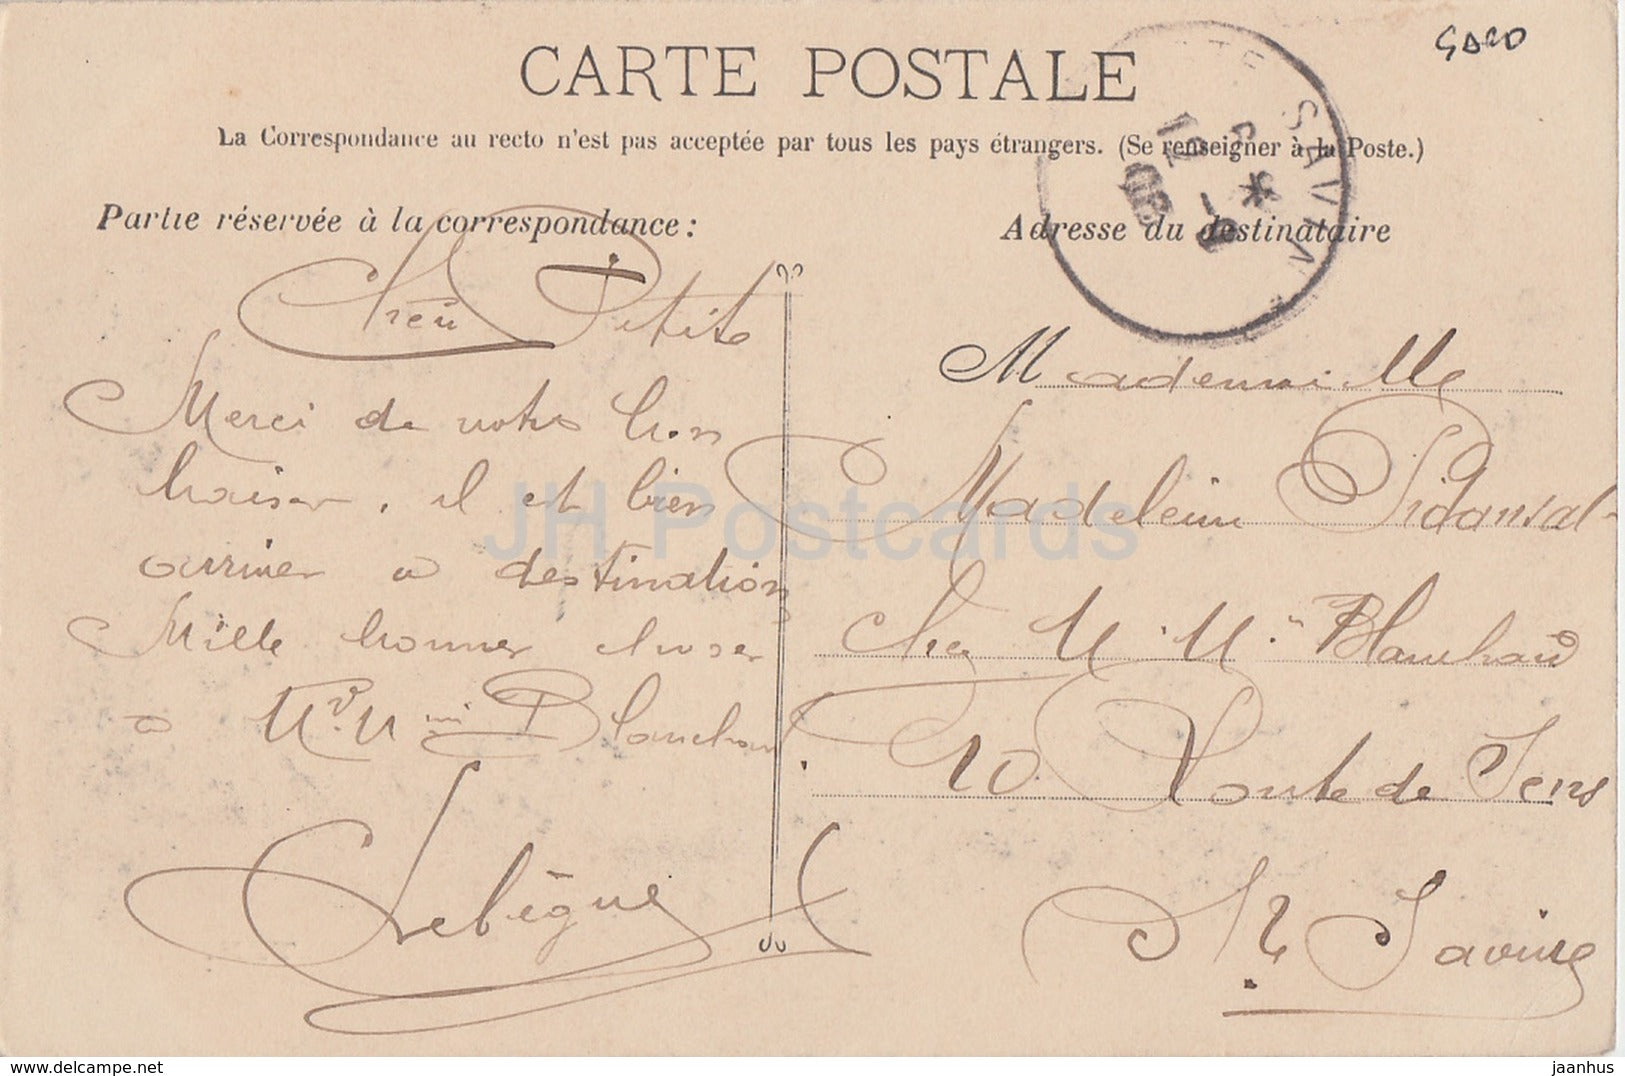 CARTE POSTALE
La Correspondance au recto n'est pas acceptée par tous les pays étrangers. (Se renseigner à la Poste.)
Partie réservée à la correspondance :
Adresse du destinataire
Petite
Merci de votre bon
baiser, il est bien
arriver a destination
Mille bonner chose
a Mr. Mme Blanchard
Lebègue
Mademoiselle
Madeleine
Chez M. Mme Blanchard
10 Route de Sens
St Savine
SAVIN
JH Postcards
jaanhus